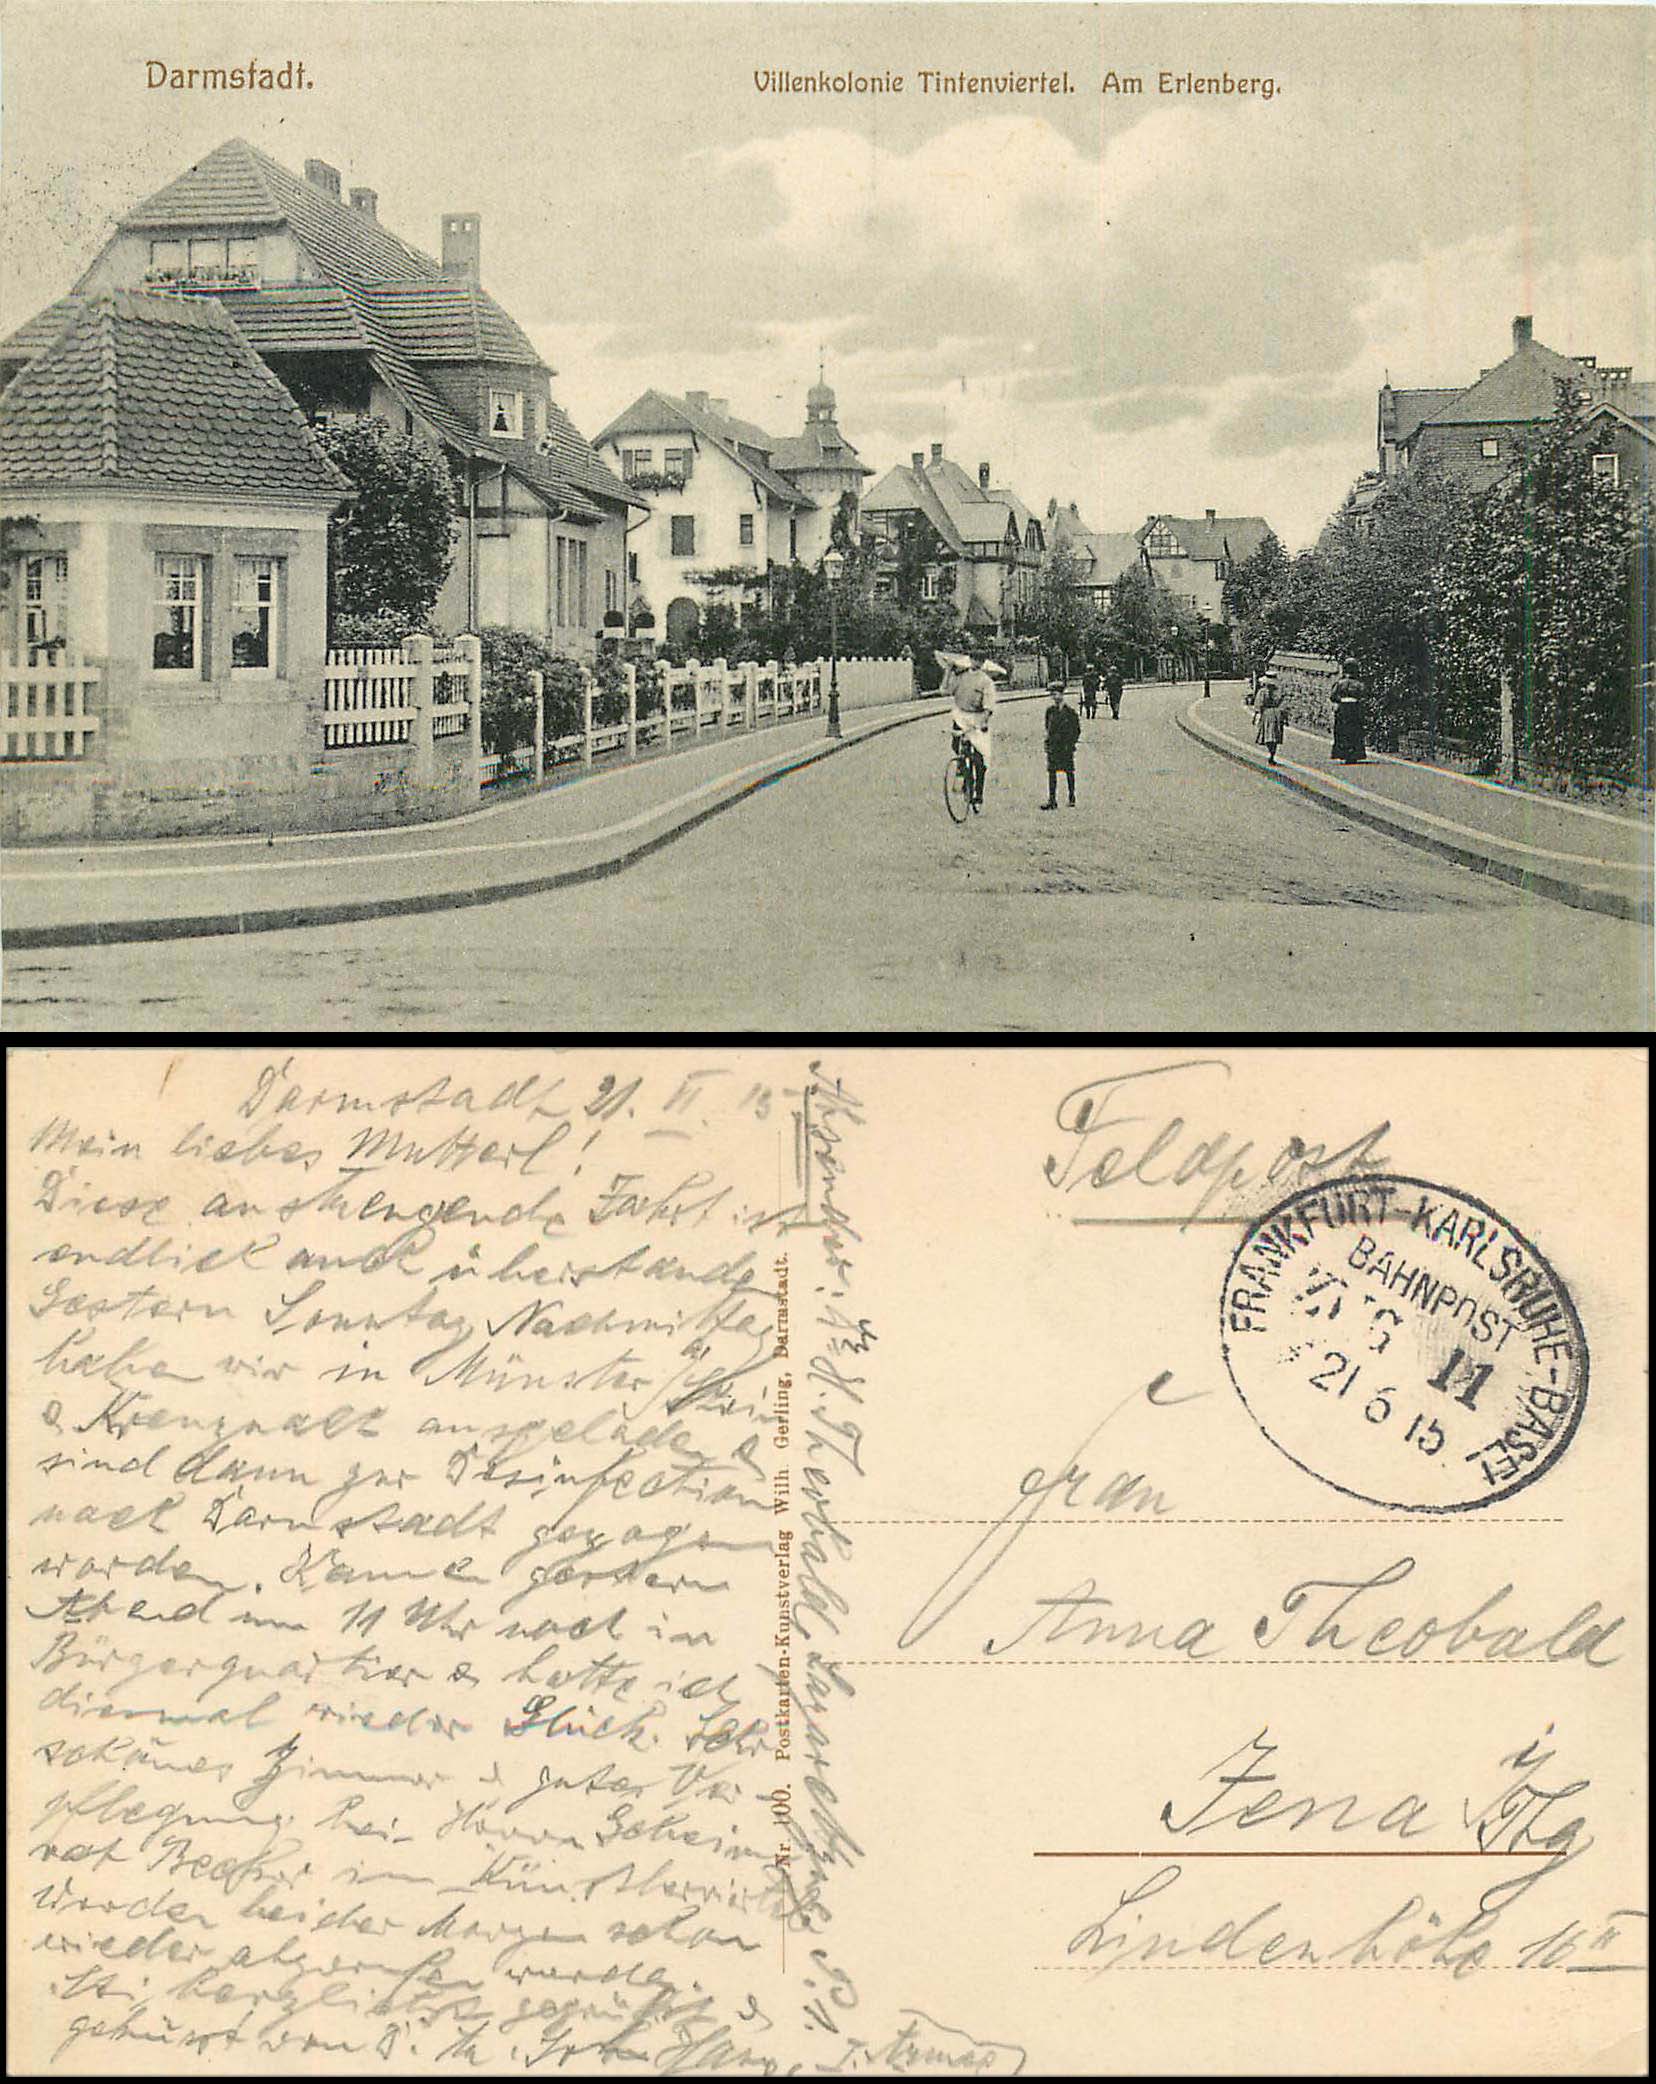 Darmstadt.
Villenkolonie Tintenviertel. Am Erlenberg.
Darmstadt 21. VI. 15
Mein liebes Mutterl!
Diese anstrengende Fahrt ist
endlich auch überstanden
Gestern Sonntag Nachmittag
haben wir in Münster a/Stein
& Kreuznach ausgeladen &
sind dann zur Desinfection
nach Darmstadt gezogen
worden. Kamen gestern
Abend um 11 Uhr noch in
Bürgerquartier & hatte ich
diesmal wieder Glück. Sehr
schönes Zimmer & gute Ver-
pflegung bei Herrn Geheim
rat Becker im Künstlerviertel
Werden leider Morgen schon
wieder abgerufen werden.
Sei herzlichst gegrüßt &
geküsst von D. tr. Sohn Hans.
Absender: H. Theobald, Lazarettzug P. 1.
I. Armee
Nr. 100. Postkarten-Kunstverlag Wilh. Gerling, Darmstadt.
Feldpost
FRANKFURT-KARLSRUHE-BASEL
BAHNPOST
ZUG 11
21 6 15
Frau
Anna Theobald
Jena i/Thg
Lindenhöhe 10 II